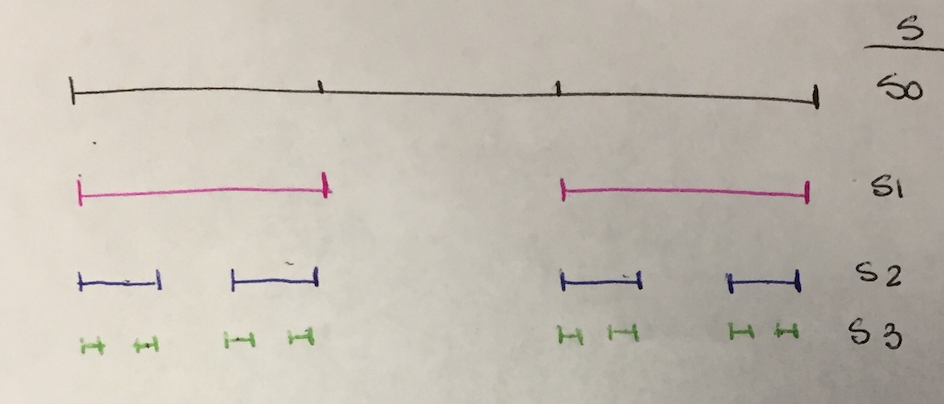 S
S0
S1
S2
S3